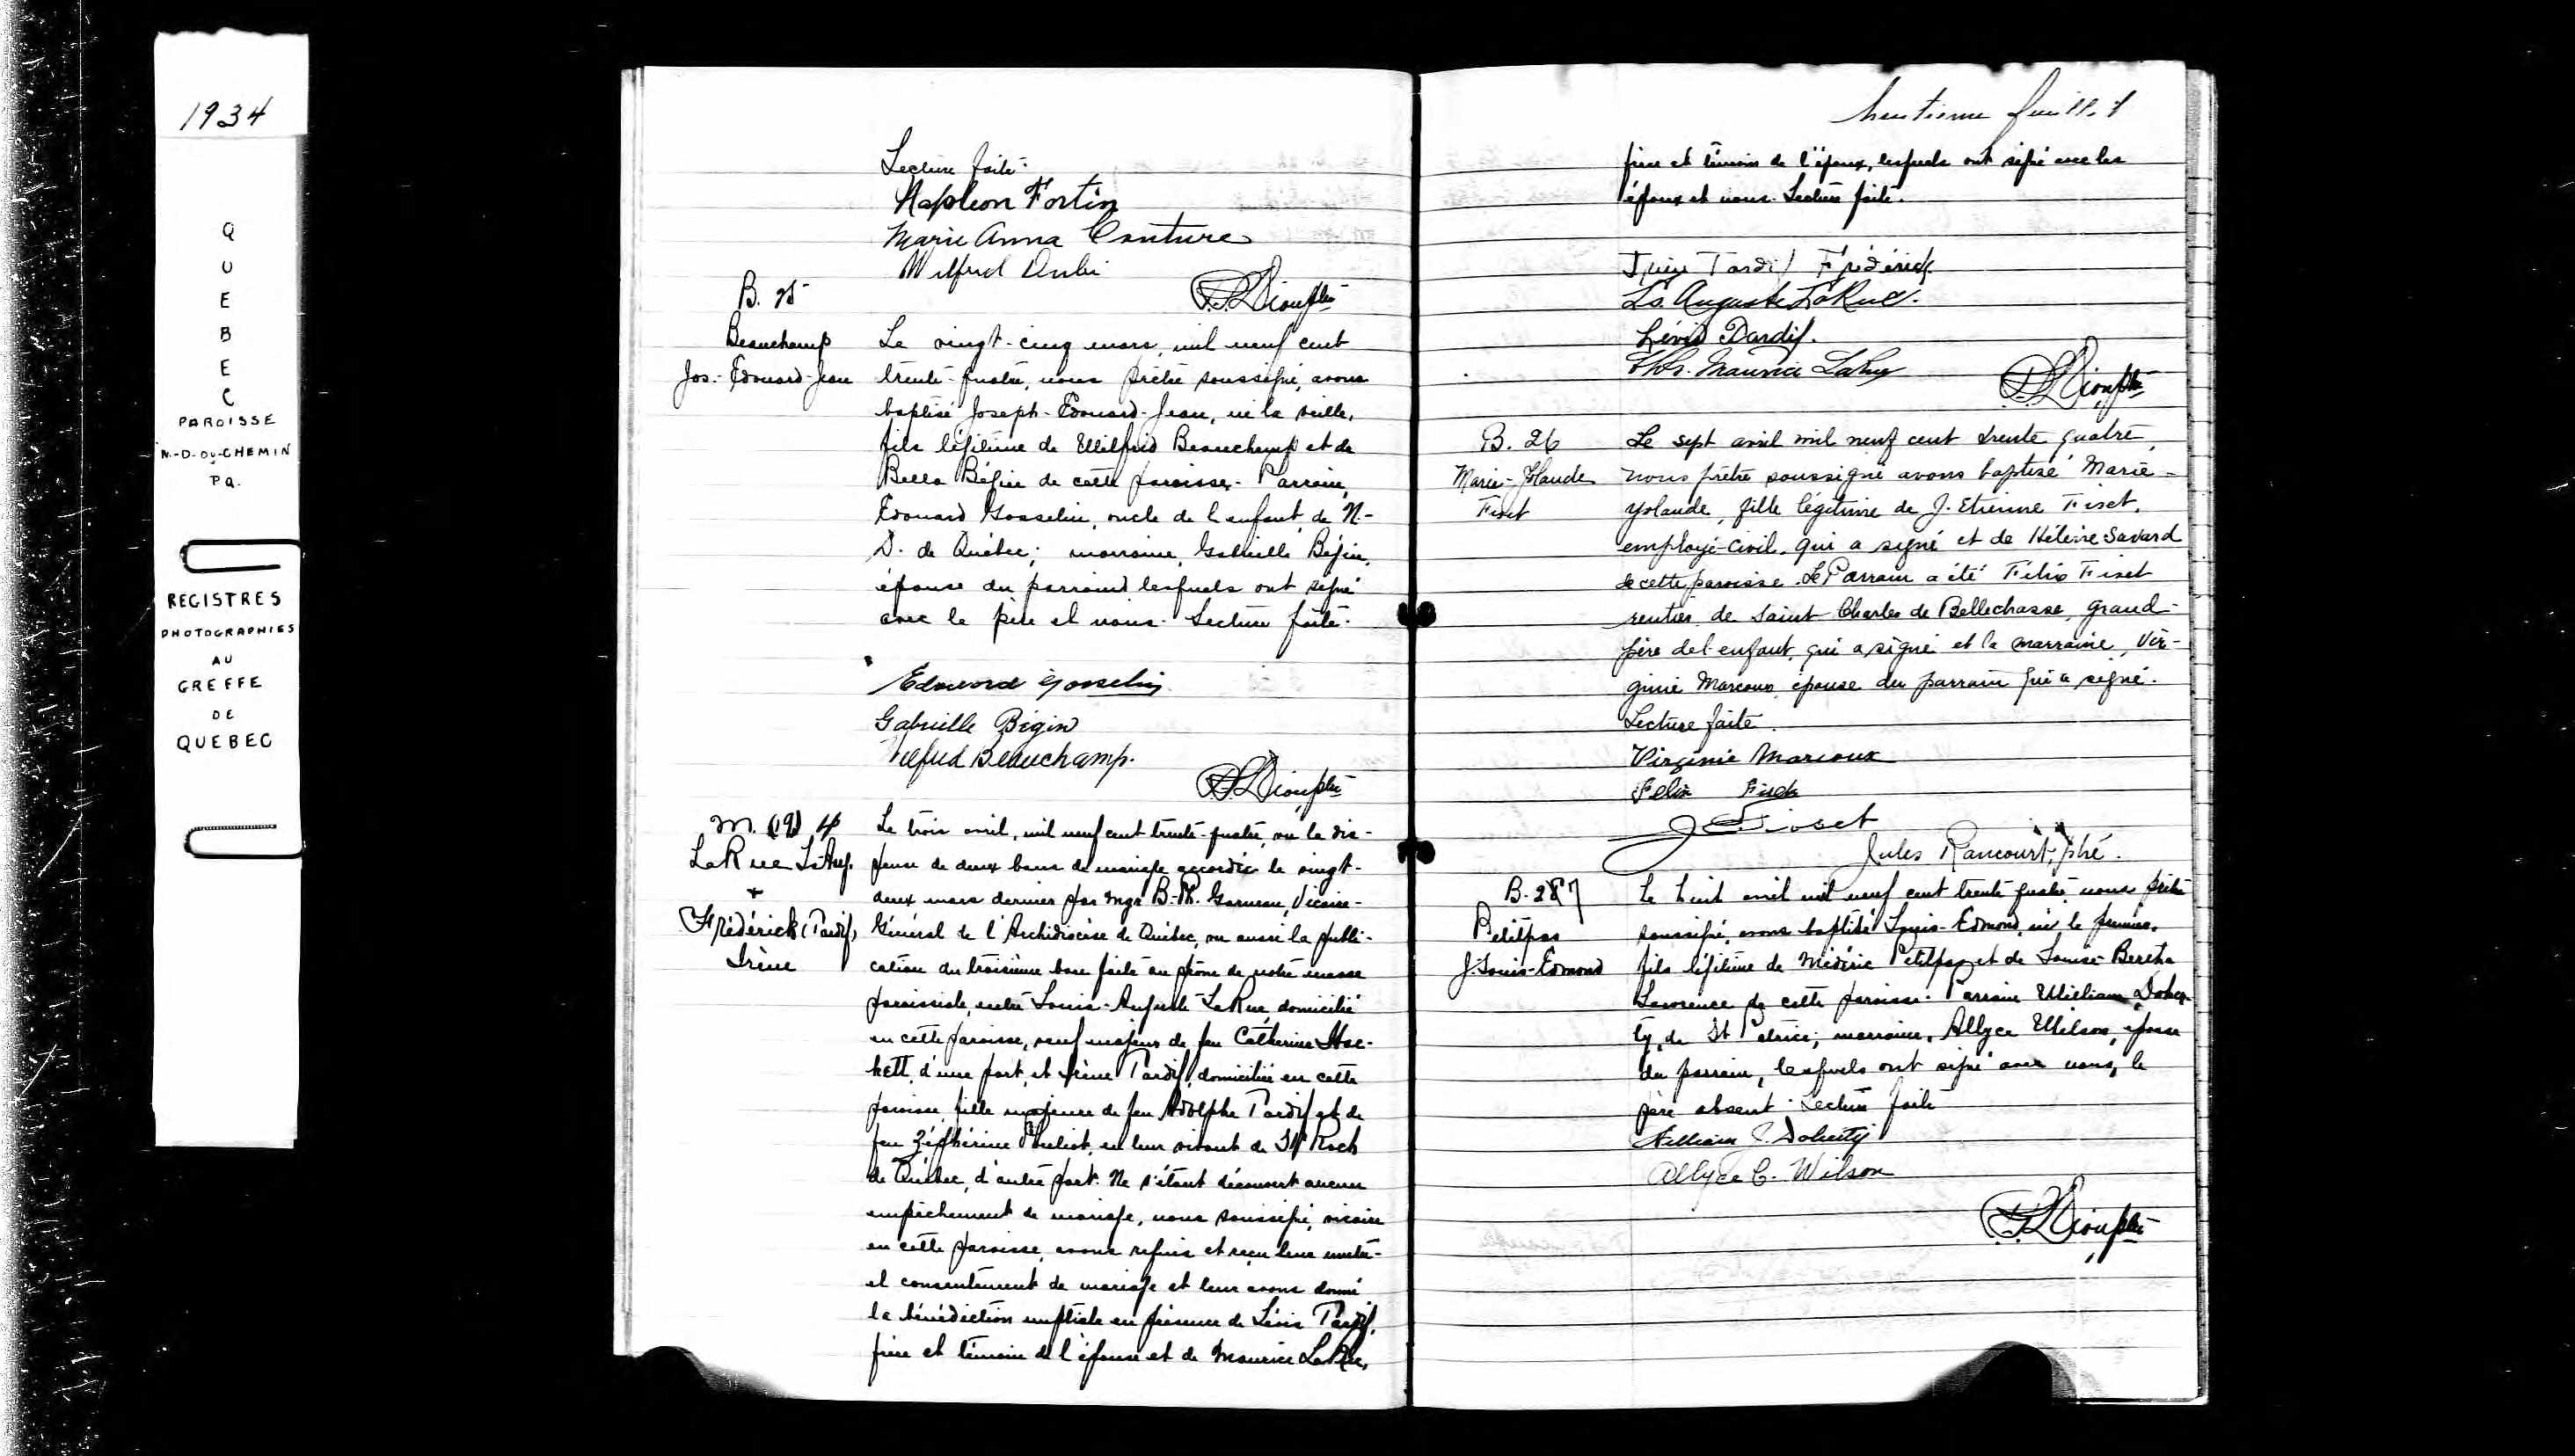 1934
QUEBEC
PAROISSE
N.-D-DU-CHEMIN
PQ.
REGISTRES
PHOTOGRAPHIES
AU
GREFFE
DE
QUEBEC
Lecture faite.
Napoleon Fortin
Marie Anna Couture
Wilfrid
B. 25
Beauchamp
Jos.-Edouard-Jean
Le vingt-cinq mars, mil neuf cent
trente-quatre, nous prêtre soussigné, avons
baptisé Joseph-Edouard-Jean, né la veille,
fils légitime de Wilfrid Beauchamp et de
Bella Bégin de cette paroisse. Parrain,
Edouard Gosselin, oncle de l'enfant, de N-
D. de Québec; marraine, Gabrielle Bégin,
épouse du parrain, lesquels ont signé
avec le père et nous. Lecture faite.
Edouard Gosselin
Gabrielle Bégin
Wilfrid Beauchamp.
M. (19) 4
LaRue Ls-Aug.
+
Frédérick (Tardif)
Irène
Le trois avril, mil neuf cent trente-quatre, vu la dis-
pense de deux bans de mariage accordée le vingt-
deux mars dernier par Mgr B.-Ph. Garneau, Vicaire-
Général de l'Archidiocèse de Québec, vu aussi la publi-
cation du troisième ban faite au prône de notre messe
paroissiale, entre Louis-Auguste LaRue, domicilié
en cette paroisse, veuf majeur de feu Catherine Hac-
kett, d'une part, et Irène Tardif, domiciliée en cette
paroisse, fille majeure de feu Adolphe Tardif et de
feu Zéphérine Pouliot, en leur vivant de St Roch
de Québec, d'autre part. Ne s'étant découvert aucun
empêchement de mariage, nous soussigné, vicaire
en cette paroisse, avons requis et reçu leur mutu-
el consentement de mariage et leur avons donné
la bénédiction nuptiale en présence de Lévis Tardif,
frère et témoin de l'épouse et de Maurice LaRue,
huitième feuillet
frère et témoin de l'époux, lesquels ont signé avec les
époux et nous. Lecture faite.
Irène Tardif Frédérick
Ls. Auguste LaRue.
Lévis Tardif.
Maurice LaRue
B. 26
Marie-Yolande
Fiset
Le sept avril mil neuf cent trente quatre,
nous prêtre soussigné avons baptisé Marie-
Yolande, fille légitime de J. Etienne Fiset,
employé-civil, qui a signé et de Hélène Savard
de cette paroisse. Le Parrain a été Félix Fiset
rentier de Saint Charles de Bellechasse, grand-
père de l'enfant, qui a signé et la marraine, Vir-
ginie Marcoux, épouse du parrain qui a signé.
Lecture faite.
Virginie Marcoux
Felix Fiset
J E Fiset
Jules Rancourt, ptre.
B. 27
Petitpas
J. Louis-Edmond
Le huit avril mil neuf cent trente quatre, nous prêtre
soussigné, avons baptisé Louis-Edmond, né le premier,
fils légitime de Médéric Petitpas et de Louise-Bertha
Lawrence de cette paroisse. Parrain William Doher-
ty, de St Patrice; marraine, Allyce Wilson, épouse
du parrain, lesquels ont signé avec nous, le
père absent. Lecture faite
William J. Doherty
Allyce C. Wilson